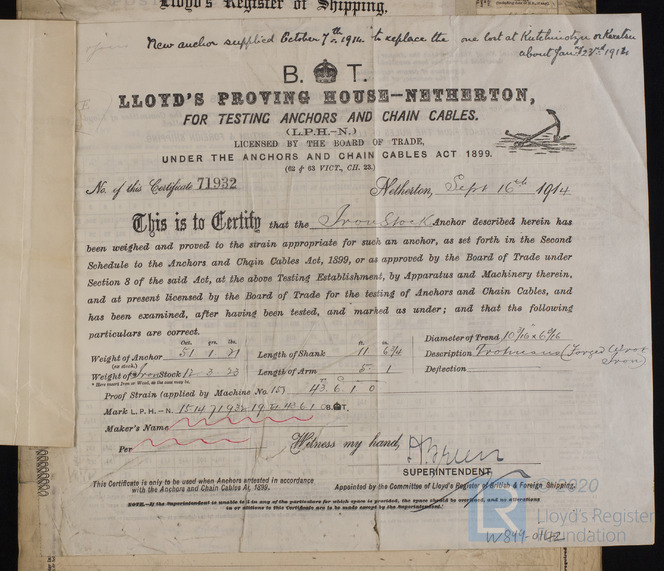 Lloyd's Register of Shipping.
New anchor supplied October 7th 1914 to replace the one lost at Kutchinotzu or Karatsu
about Jany 23rd 1914
B. T.
LLOYD'S PROVING HOUSE—NETHERTON,
FOR TESTING ANCHORS AND CHAIN CABLES.
(L.P.H.—N.)
LICENSED BY THE BOARD OF TRADE,
UNDER THE ANCHORS AND CHAIN CABLES ACT 1899.
(62 & 63 VICT., CH. 23.)
No. of this Certificate 71932 Netherton, Sept 16th 1914
This is to Certify that the Iron Stock Anchor described herein has
been weighed and proved to the strain appropriate for such an anchor, as set forth in the Second
Schedule to the Anchors and Chain Cables Act, 1899, or as approved by the Board of Trade under
Section 8 of the said Act, at the above Testing Establishment, by Apparatus and Machinery therein,
and at present licensed by the Board of Trade for the testing of Anchors and Chain Cables, and
has been examined, after having been tested, and marked as under; and that the following
particulars are correct.
Cwt. qrs. lbs. ft. in. Diameter of Trend 10 3/16 x 6 6/16
Weight of Anchor 51 1 21 Length of Shank 11 6 3/4 Description Trotmans (Forged Iron)
(no stock.)
Weight of Iron Stock 12 3 23 Length of Arm 5 1 Deflection
* Here insert Iron or Wood, as the case may be.
Proof Strain (applied by Machine No. 15) 43 6 1 0
Mark L.P.H.—N. B.T.
Maker's Name
Per Witness my hand,
SUPERINTENDENT
This Certificate is only to be used when Anchors are tested in accordance
with the Anchors and Chain Cables Act, 1899.
Appointed by the Committee of Lloyd's Register of British & Foreign Shipping.
NOTE.—If the Superintendent is unable to fill in any of the particulars for which space is provided, the space should be cancelled, and no alterations
in or additions to this Certificate are to be made except by the Superintendent.
2020
LR Lloyd's Register
Foundation
W899-0142